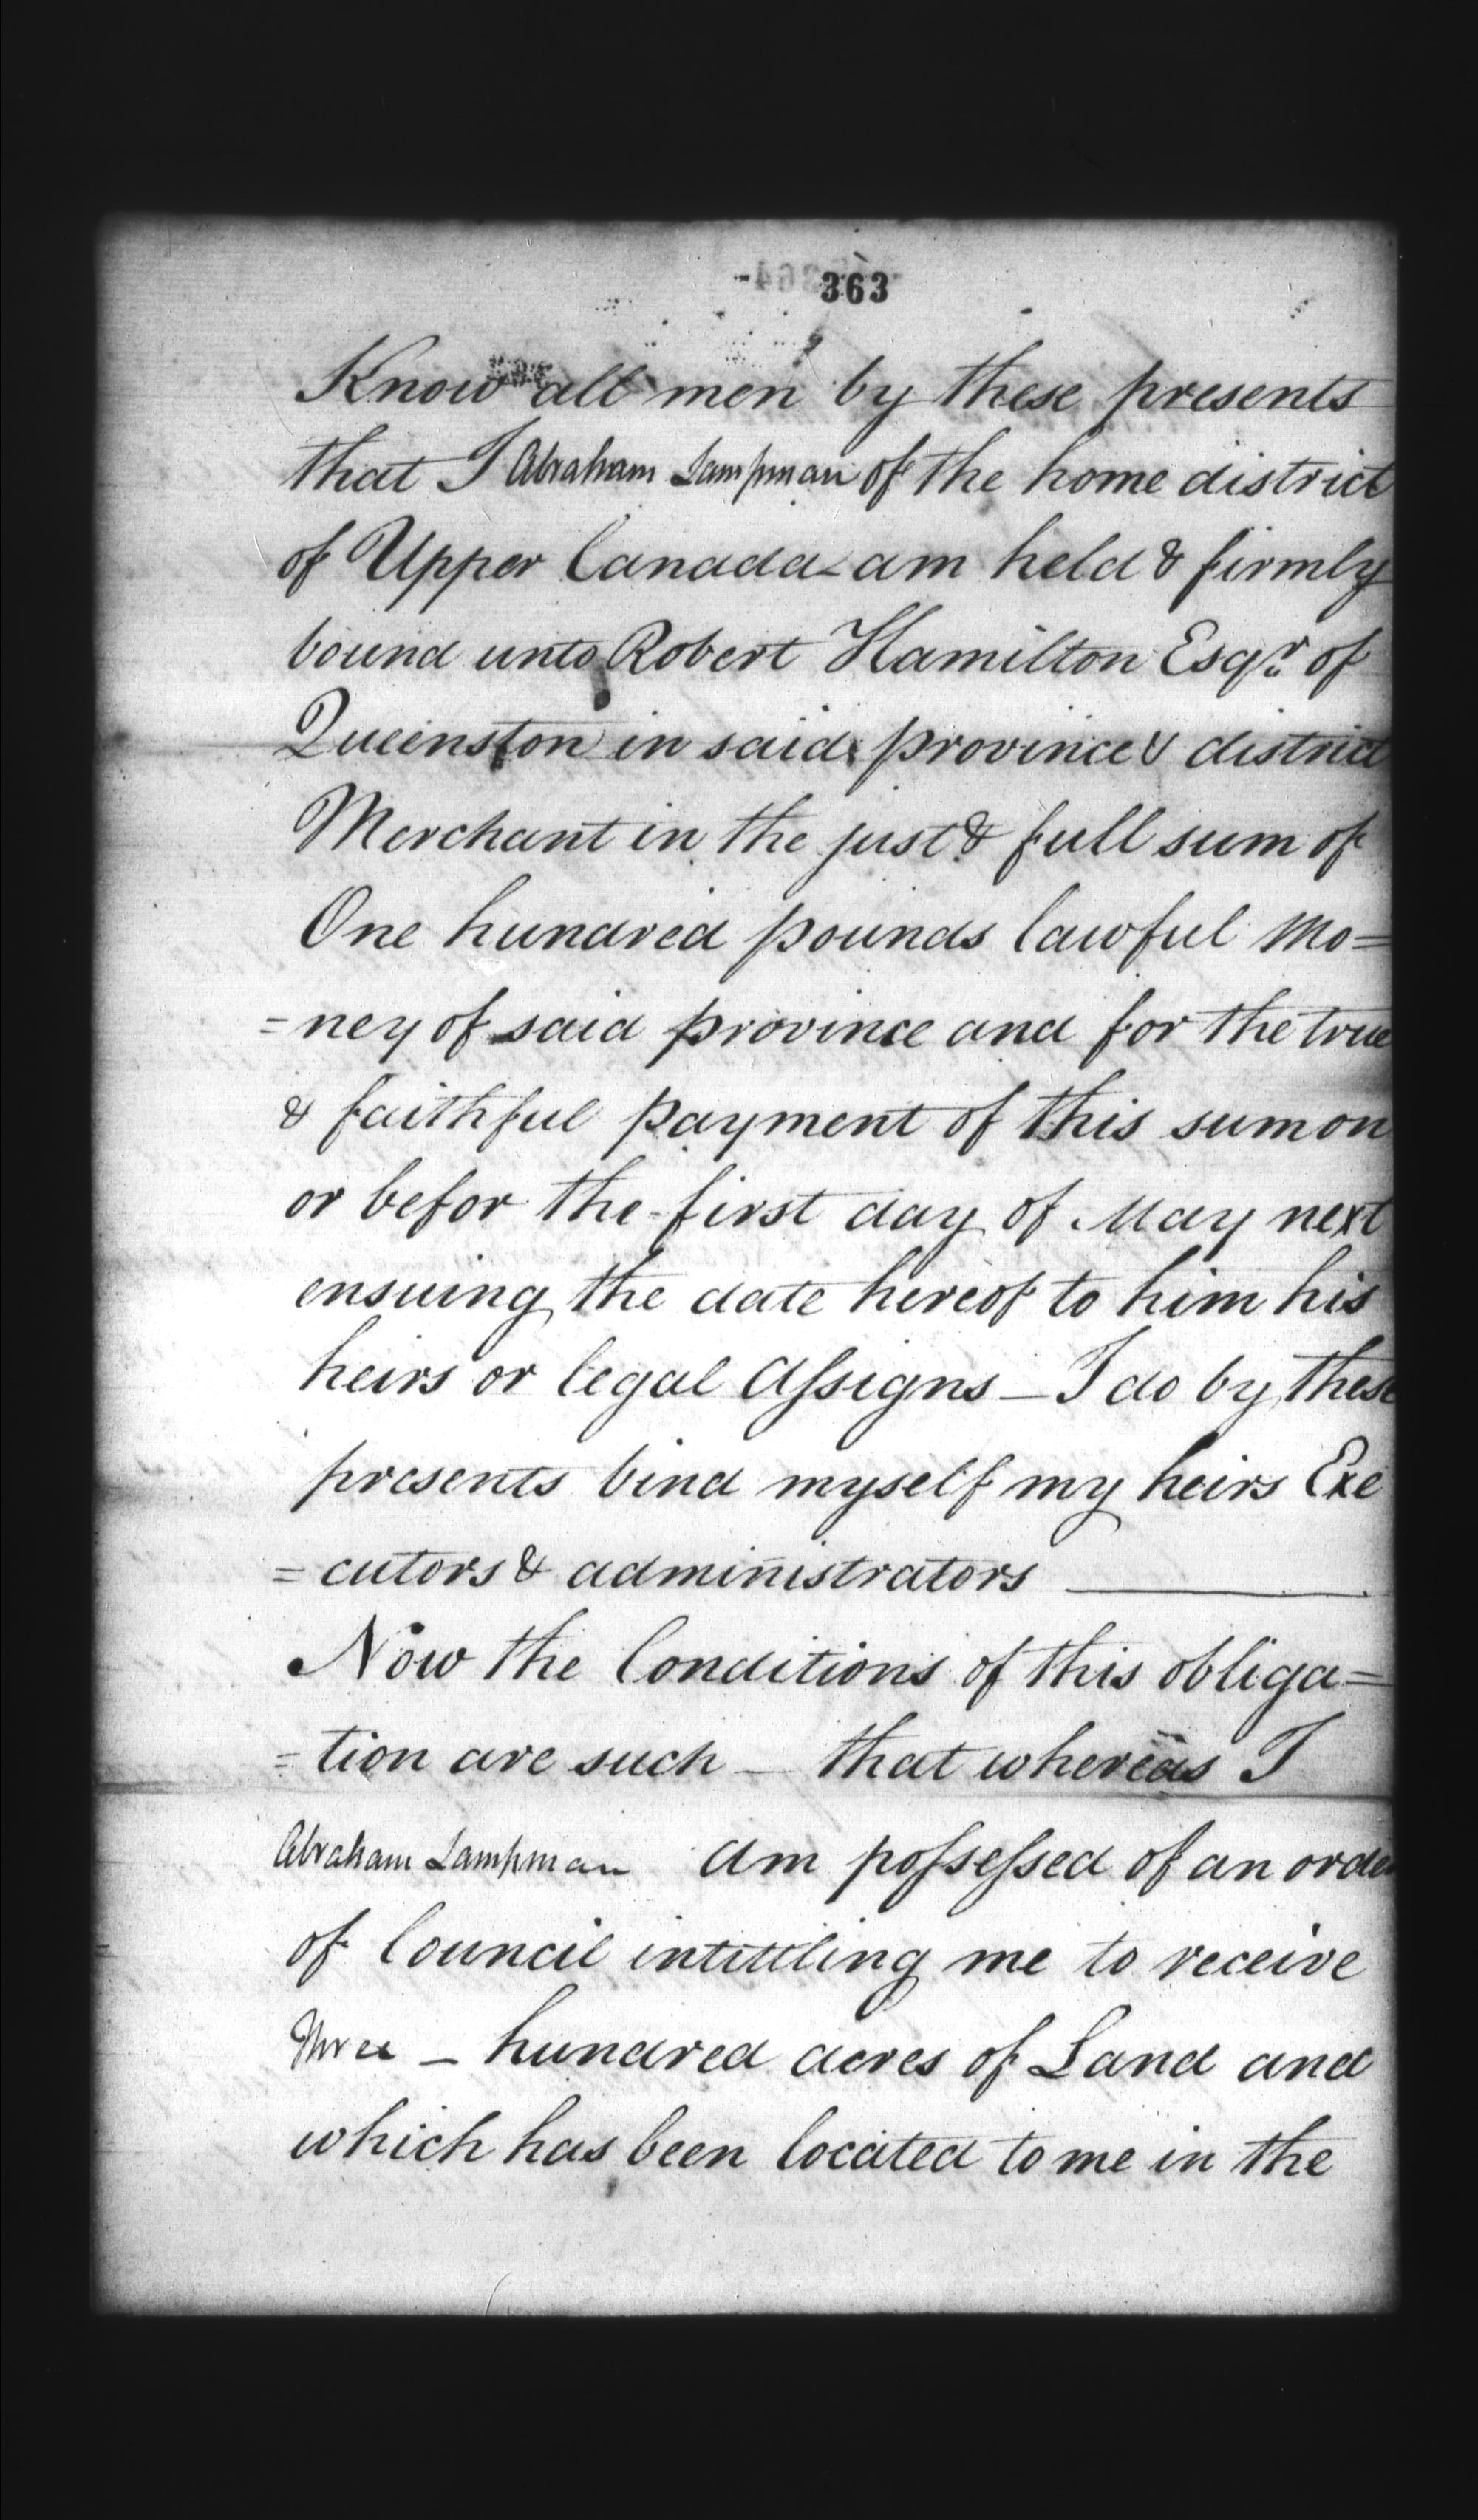 363
Know all men by these presents
that I Abraham Lampman of the home district
of Upper Canada - am held & firmly
bound unto Robert Hamilton Esqr. of
Queenston in said province & district
Merchant in the just & full sum of
One hundred pounds lawful Mo=
=ney of said province and for the true
& faithful payment of this sum on
or befor the first day of May next
ensuing the date hereof to him his
heirs or legal Assigns — I do by these
presents bind myself my heirs Exe
=cutors & administrators —
Now the Conditions of this obliga=
=tion are such — that whereas I
Abraham Lampman am possessed of an order
of Council intittling me to receive
Three — hundred acres of Land and
which has been located to me in the